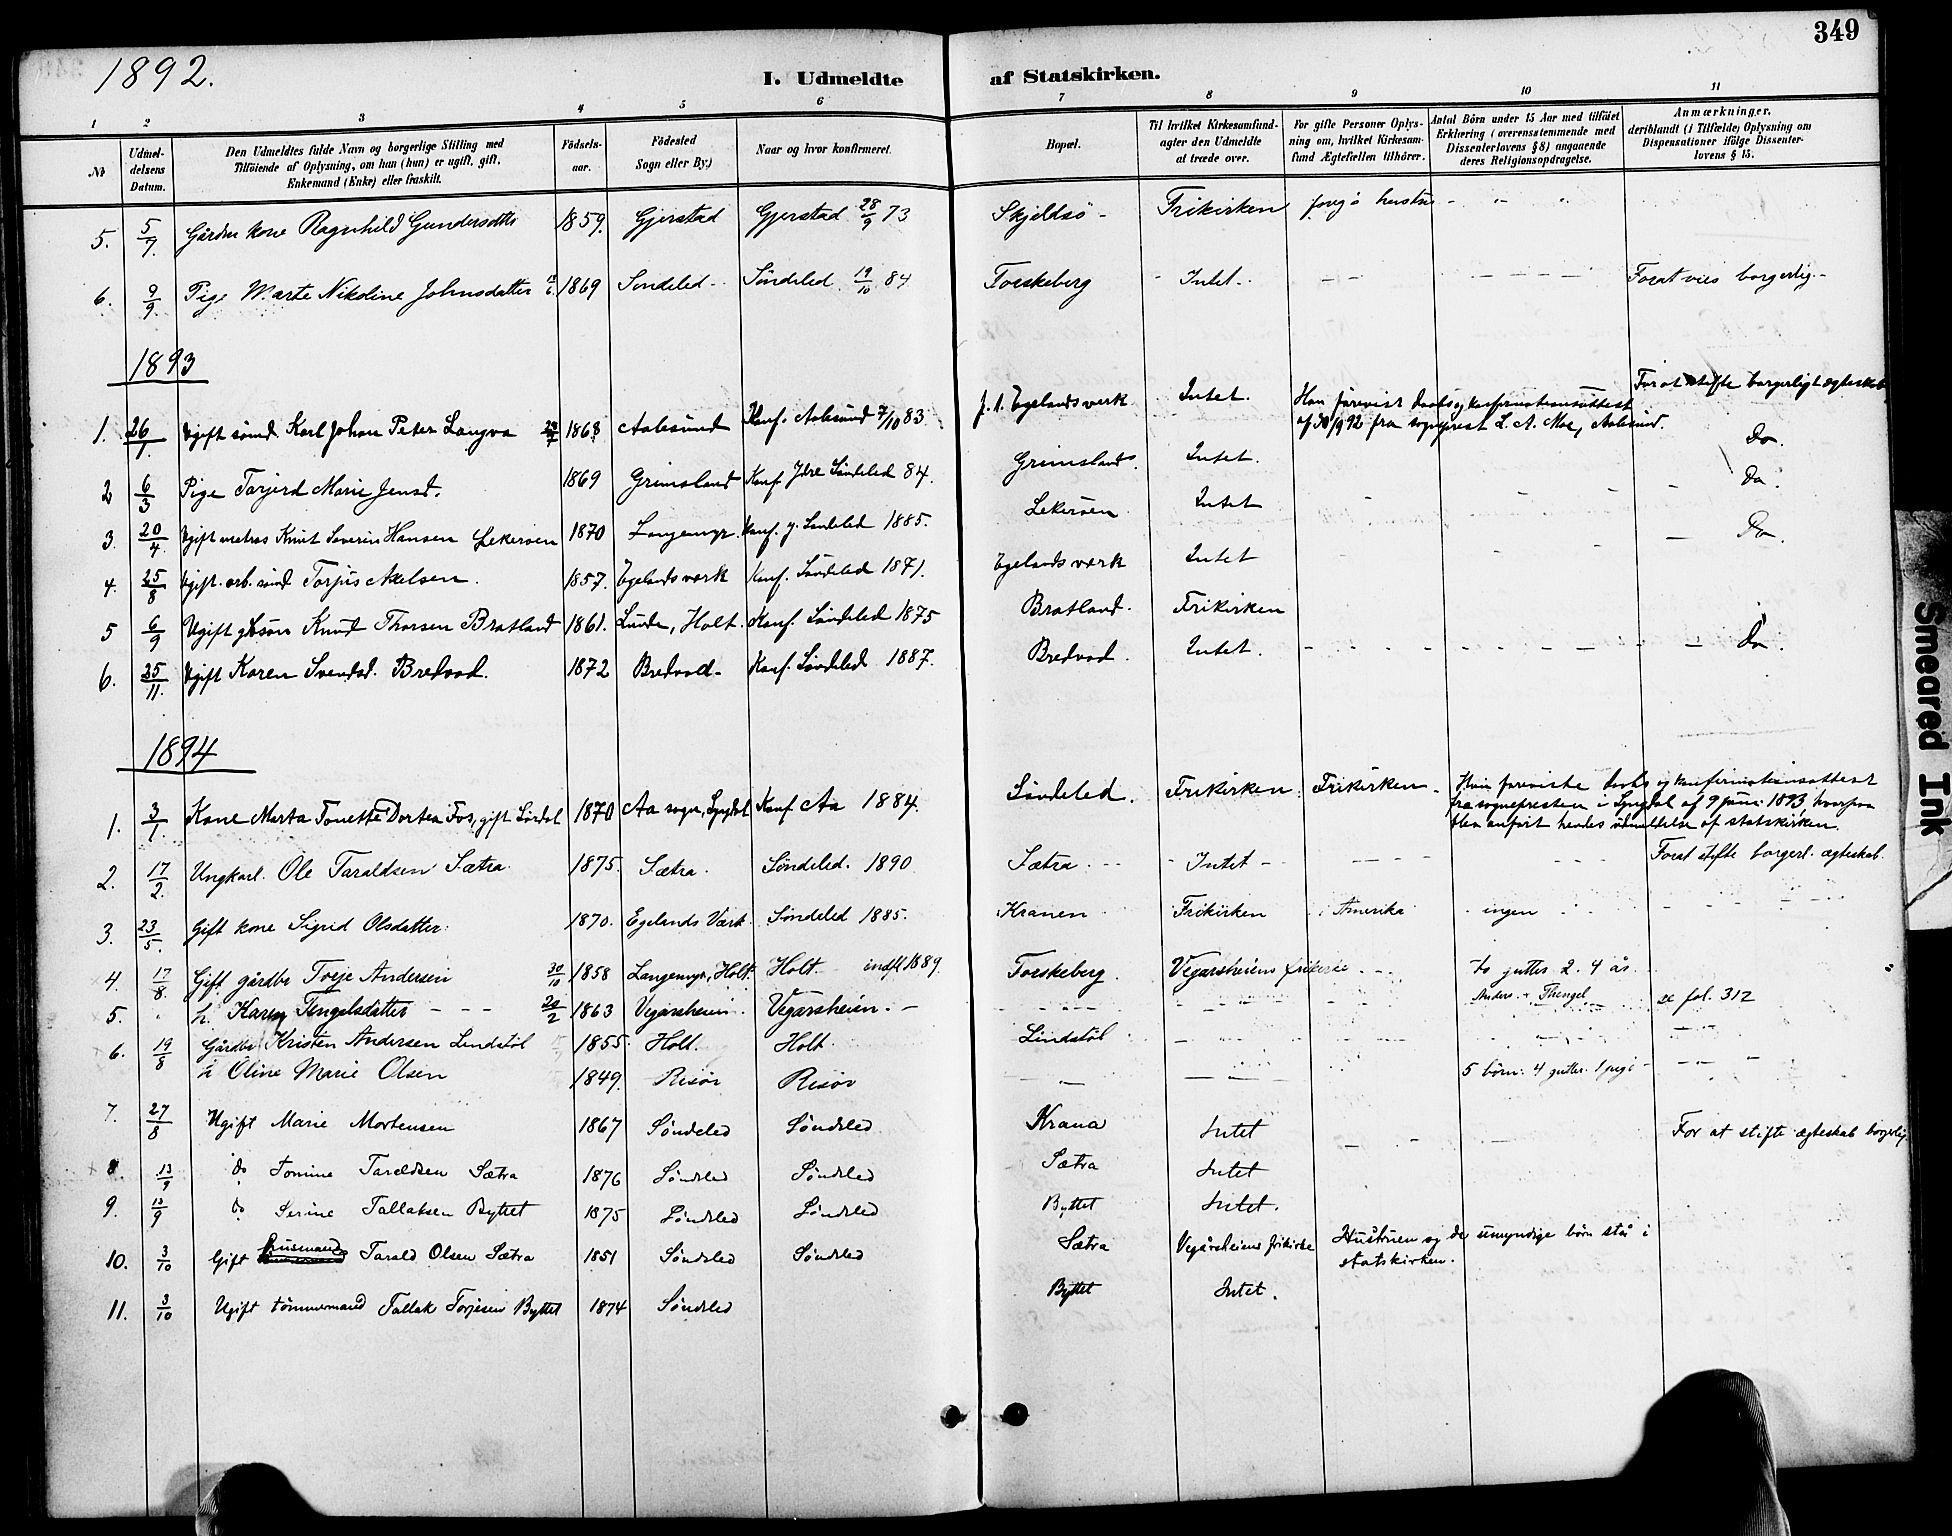 349
1892.
I. Udmeldte af Statskirken.
1 2 3 4 5 6 7 8 9 10 11
№
Udmel-
delsens
Datum.
Den Udmeldtes fulde Navn og borgerlige Stilling med
Tilföiende af Oplysning, om han (hun) er ugift, gift,
Enkemand (Enke) eller fraskilt.
Födsels-
aar.
Födested
Sogn eller By.)
Naar og hvor konfirmeret.
Bopæl.
Til hvilket Kirkesamfund-
agter den Udmeldte
at træde over.
For gifte Personer Oplys-
ning om, hvilket Kirkesam-
fund Ægtefællen tilhörer.
Antal Börn under 15 Aar med tilföiet
Erklæring (overensstemmende med
Dissenterlovens § 8) angaaende
deres Religionsopdragelse.
Anmærkninger,
deriblandt (i Tilfælde) Oplysning om
Dispensationer ifölge Dissenter-
lovens § 15.
5. 5/9. Gårdm kone Ragnhild Gundersdtts 1859. Gjerstad Gjerstad 28/9 73 Skjeldsö - Frikirken
6. 9/9. Pige Marte Nikoline Johnsdatter 1869 Sondeled - Söndeled 19/10 84 Torskeberg Intet. Forat vies borgerlig -
1893
1. 26/1 Ugift sömd. Karl Johan Peter Langva 1868 Aalesund Konf. Aalesund 7/10 83. p. t. Egelandsverk Intet. Han forevist daabs og konfirmationsattest For at stifte borgerligt ægteskab
af 20/9 92 fra sogneprest L. A. Moe, Aalesund.
2 6/3 Pige Tarjerd Marie Jensd. 1869 Grimsland Konf. Ydre Söndeled 84. Grimsland. Intet. Do.
3. 20/4 Ugift matros Knut Severin Hansen Lekeröen 1870 Langemyr. Konf. y. Söndeled 1885. Lekeröen Intet Do.
4. 25/8 Ugift. arb. sömd. Torjus Axelsen. 1857. Egelandsverk Konf. Söndeled 1871. Egelandsverk Intet Do.
5 6/9 Ugift gbsön Knud Thorsen Bratland 1861. Lunde, Holt. Konf. Söndeled 1875 Bratland. Frikirken
6. 25/11. Ugift Karen Svendsd. Bredvad. 1872 Bredvad - Konf. Söndeled 1887. Bredvad. Intet. Do.
1894
1. 3/1. Kone Marta Tonette Dortea Fos, gift Lördal 1870 Aa sogn, Lyngdal Konf Aa 1884. Söndeled. Frikirken. Frikirken. Hun foreviste daabs og konfirmationsattest
fra sognepresten i Lyngdal af 9 juni 1893, hvorpaa
blev anfört hendes udmeldelse af statskirken.
2. 17/2. Ungkarl. Ole Taraldsen Sætra 1875. Sætra. Söndeled. 1890 Sætra. Intet - Forat stifte borgerl. ægteskab.
3. 23/5. Gift kone Sigrid Olsdatter. 1870. Egelands Værk. Söndeled 1885. Kranen Frikirken i Amerika ingen
4. 17/8. Gift gårdbr Torje Andersen 30/10 1858 Langemyr, Holt. Holt. indfl 1889. Torskeberg. Vegarsheiens frikirke to gutter 2. 4 år.
5. h. Karen Tengelsdatter 20/2 1863 Vegarsheien. Vegarsheien. - Anders. Thengel se fol. 312
6. 19/8 Gårdbr Kristen Andersen Lindstöl 1855. Holt. Holt. Lindstöl
h Oline Marie Olsen 1849. Risör Risör 5 börn: 4 gutter. 1 pige
7. 27/8 Ugift Marie Mortensen 1867 Söndeled Söndeled Krana Intet For at stifte ægteskab borgerlig.
8 13/9 do Tomine Taraldsen Sætra 1876 Söndeled Söndeled Sætra Intet
9. 13/9 do Serine Tallaksen Byttet 1875 Söndeled Söndeled Byttet Intet.
10. 3/10 Gift husmand Tarald Olsen Sætra 1851 Söndeled Söndeled Sætra Vegårsheiens frikirke Hustruen og de umyndige börn stå i
statskirken.
11. 3/10 Ugift tömmermand Tallak Torjesen Byttet 1874 Söndeled Byttet Intet.
Smeared Ink